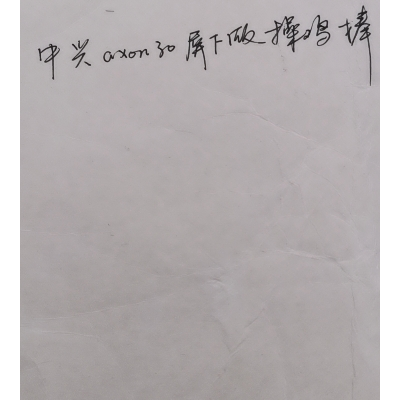 中兴axon30屏下版操鸡棒